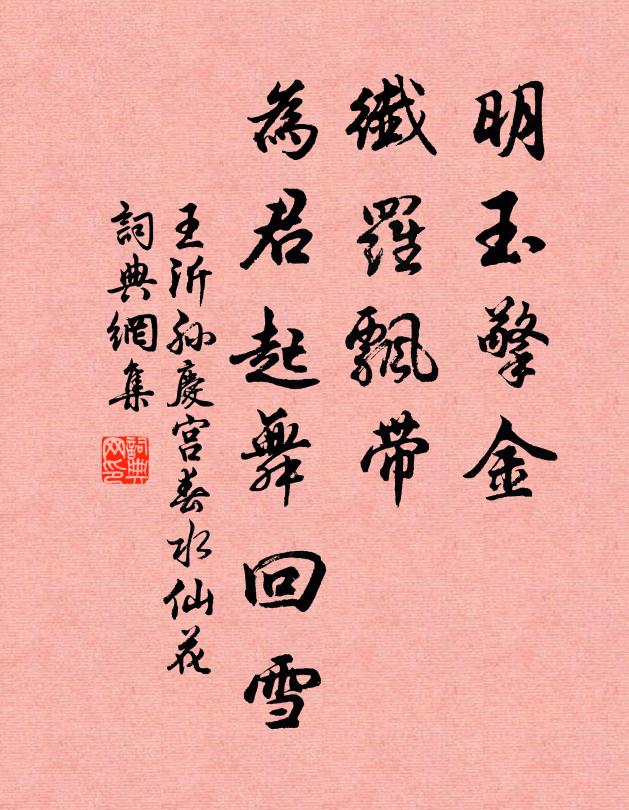 明玉擎金
纖羅飄带
為君起舞回雪
王沂孙慶宫春水仙花
詞典網集
詞典網印